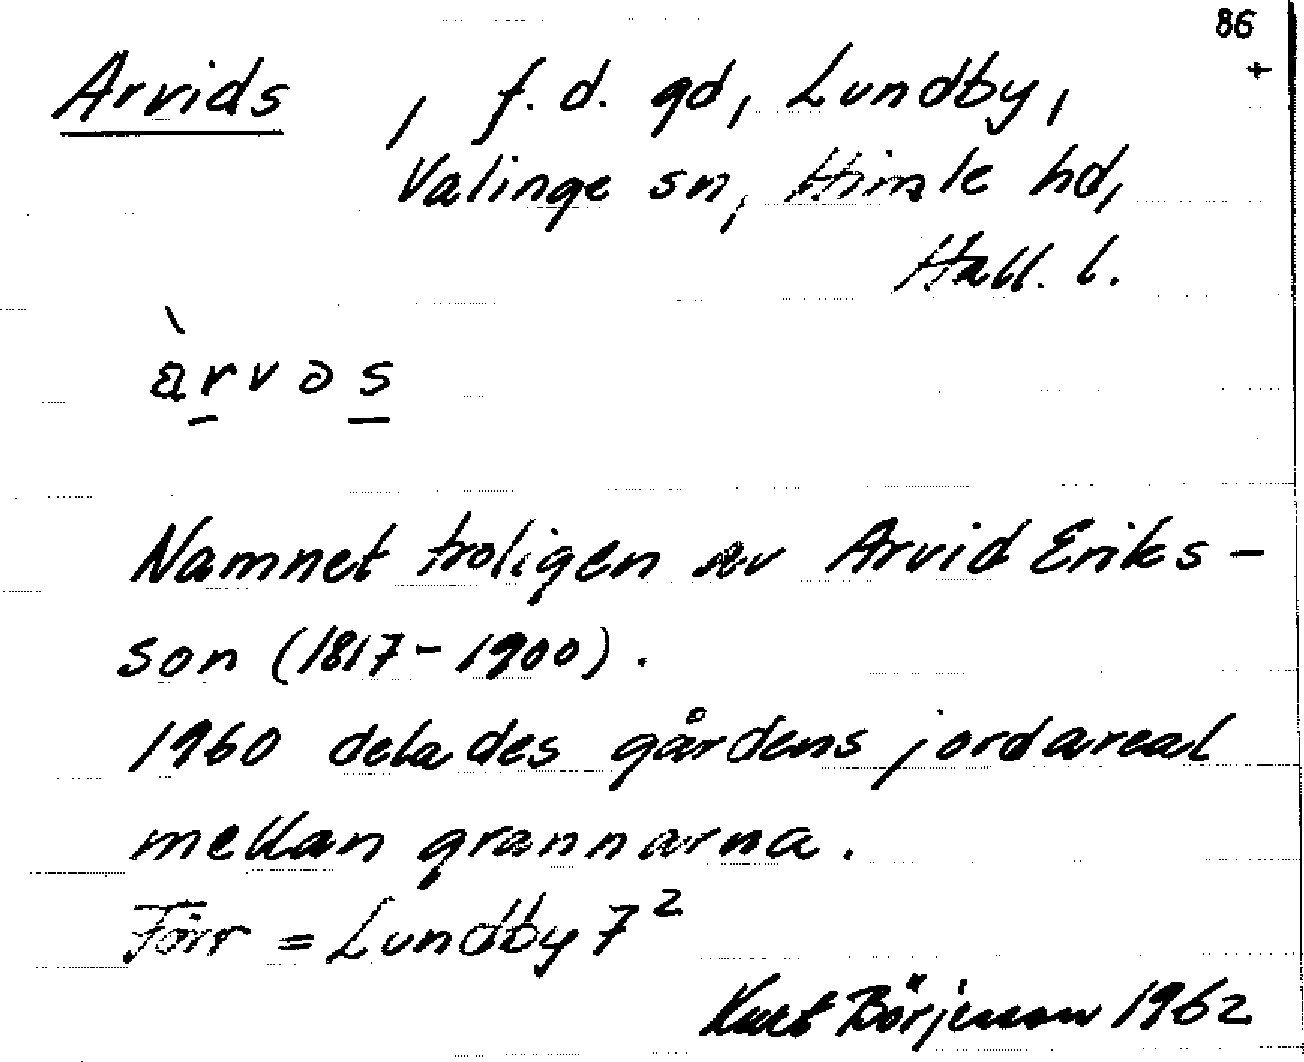 86
+
Arvids , f.d. gd, Lundby,
Valinge sn, Himle hd,
Hall. l.
àrvəs
Namnet troligen av Arvid Eriks-
son (1817-1900).
1960 delades gårdens jordareal
mellan grannarna.
Förr = Lundby 7²
Kurt Börjesson 1962